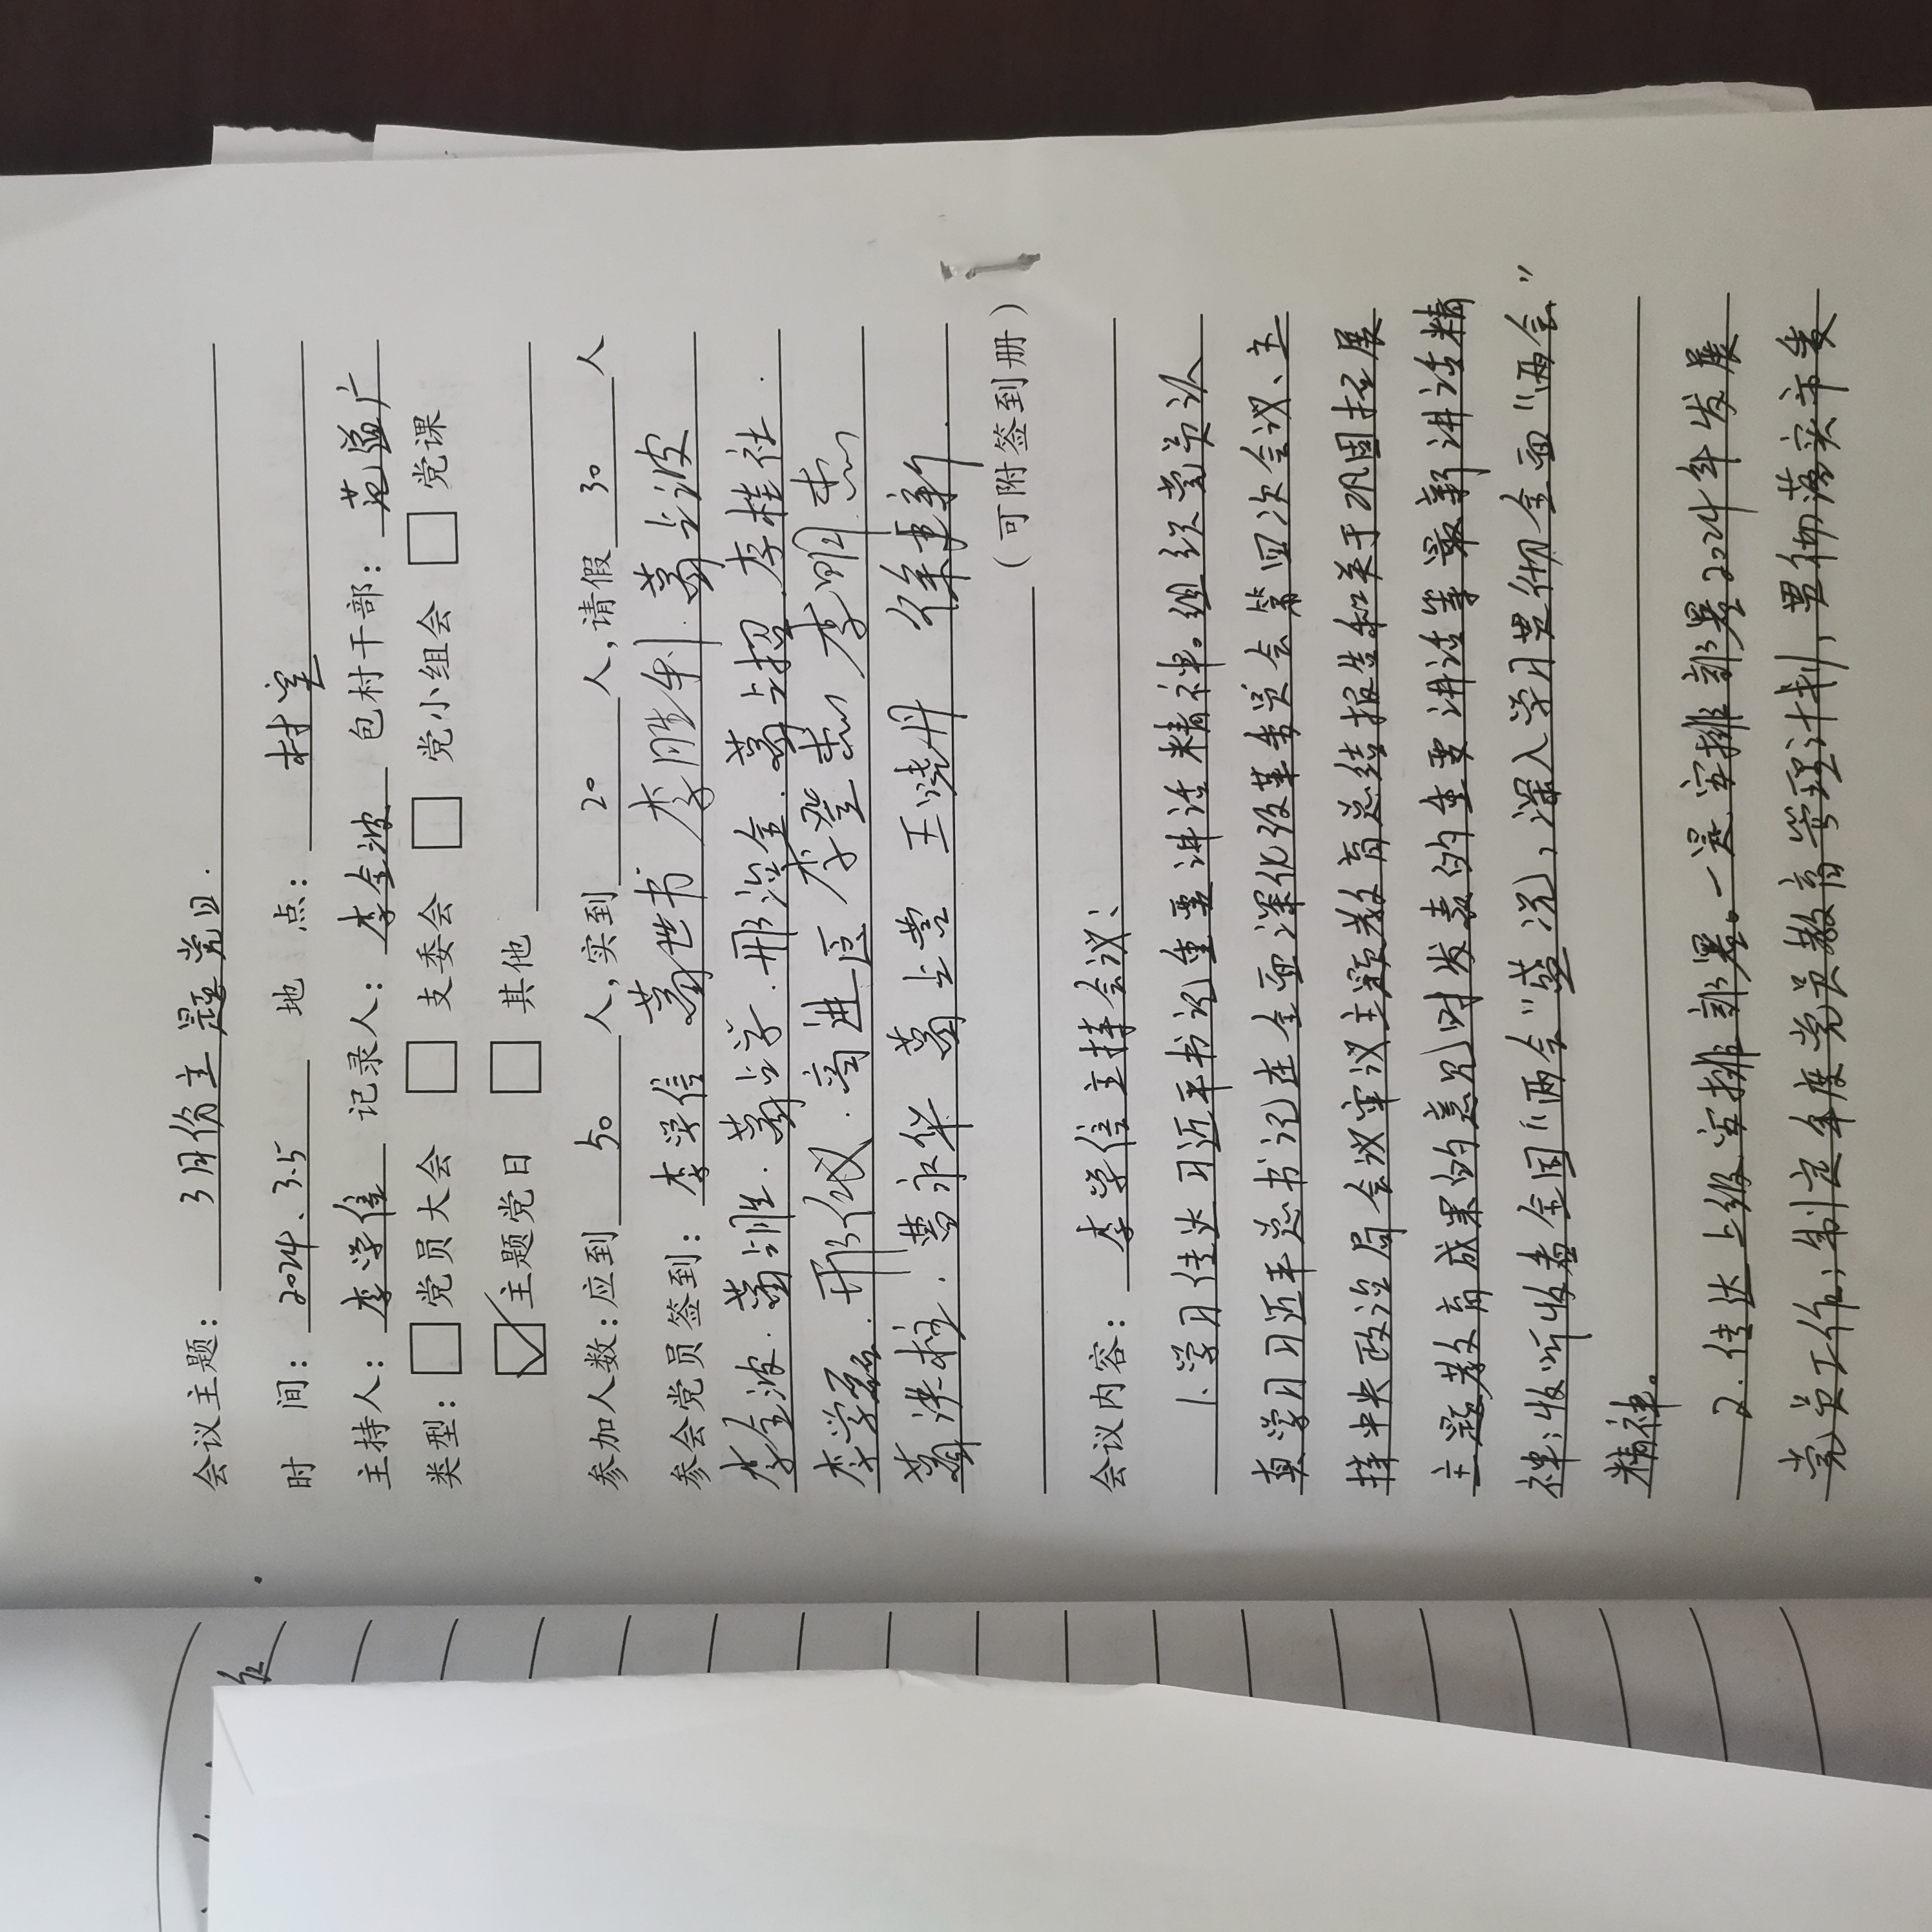 会议主题： 3月份主题党日.
时 间： 2024、3.5 地 点： 村室
主持人： 李学信 记录人： 李金波 包村干部： 范溢广
类型：□党员大会 □支委会 □党小组会 □党课
☑主题党日 □其他
参加人数：应到 50 人，实到 20 人，请假 30 人
参会党员签到： 李学信 葛世书 李胜利 葛占波
李金波. 葛训胜. 葛占学. 邢治金. 葛占招. 李桂社.
李学磊. 邢仪. 高进臣 李登杰 李明杰
葛洪柱. 曹永华 葛占营 王晓丹 徐事新
（可附签到册）
会议内容： 李学信主持会议、
1.学习传达习近平书记重要讲话精神。组织党员认
真学习习近平总书记在全面深化改革委员会第四次会议、主
持中央政治局会议审议主题教育总结报告和关于巩固拓展
主题教育成果的意见时发表的重要讲话等最新讲话精
神；收听收看全国“两会”盛况，深入学习贯彻全面“两会”
精神。
2.传达上级安排部署。一是安排部署2024年发展
党员工作，制定年度党员教育管理计划，贯彻落实市委